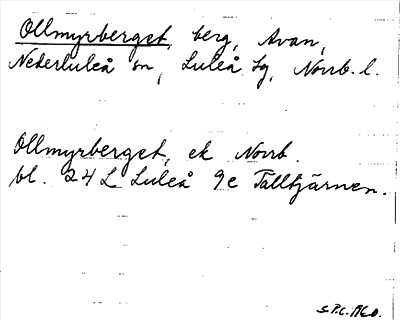 Ollmyrberget, berg, Avan,
Nederluleå sn, Luleå tg, Norrb. l.
Ollmyrberget, ek Norrb.
bl. 24 L Luleå 9e Talltjärnen.